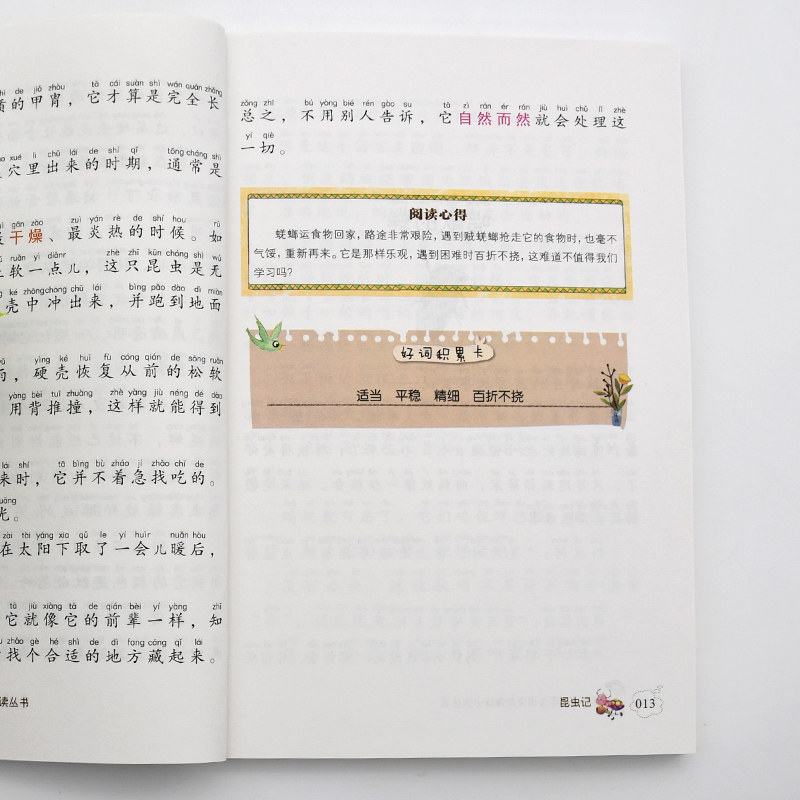 shì de jiǎ zhòu tā cái suàn shì wán quán zhǎng
质的甲胄，它才算是完全长
xué lǐ chū lái de shí qī tōng cháng shì
穴里出来的时期，通常是
gān zào zuì yán rè de shí hou rú
干燥、最炎热的时候。如
ruǎn yì diǎnr zhè zhī kūn chóng shì wú
软一点儿，这只昆虫是无
ké zhōng chōng chū lái bìng pǎo dào dì miàn
壳中冲出来，并跑到地面
yìng ké huī fù cóng qián de sōng ruǎn
，硬壳恢复从前的松软
yòng bèi tuī zhuàng zhè yàng jiù néng dé dào
用背推撞，这样就能得到
lái shí tā bìng bù zháo jí zhǎo chī de
来时，它并不着急找吃的。
guāng
光。
zài tài yáng xia qǔ le yí huìr nuǎn hòu
在太阳下取了一会儿暖后，
tā jiù xiàng tā de qián bèi yí yàng zhī
它就像它的前辈一样，知
zhǎo gè hé shì de dì fang cáng qǐ lái
找个合适的地方藏起来。
读丛书
zǒng zhī bú yòng bié rén gào su tā zì rán ér rán jiù huì chǔ lǐ zhè
总之，不用别人告诉，它自然而然就会处理这
yí qiè
一切。
阅读心得
蜣螂运食物回家，路途非常艰险，遇到贼蜣螂抢走它的食物时，也毫不
气馁，重新再来。它是那样乐观，遇到困难时百折不挠，这难道不值得我们
学习吗？
好词积累卡
适当 平稳 精细 百折不挠
昆虫记 013